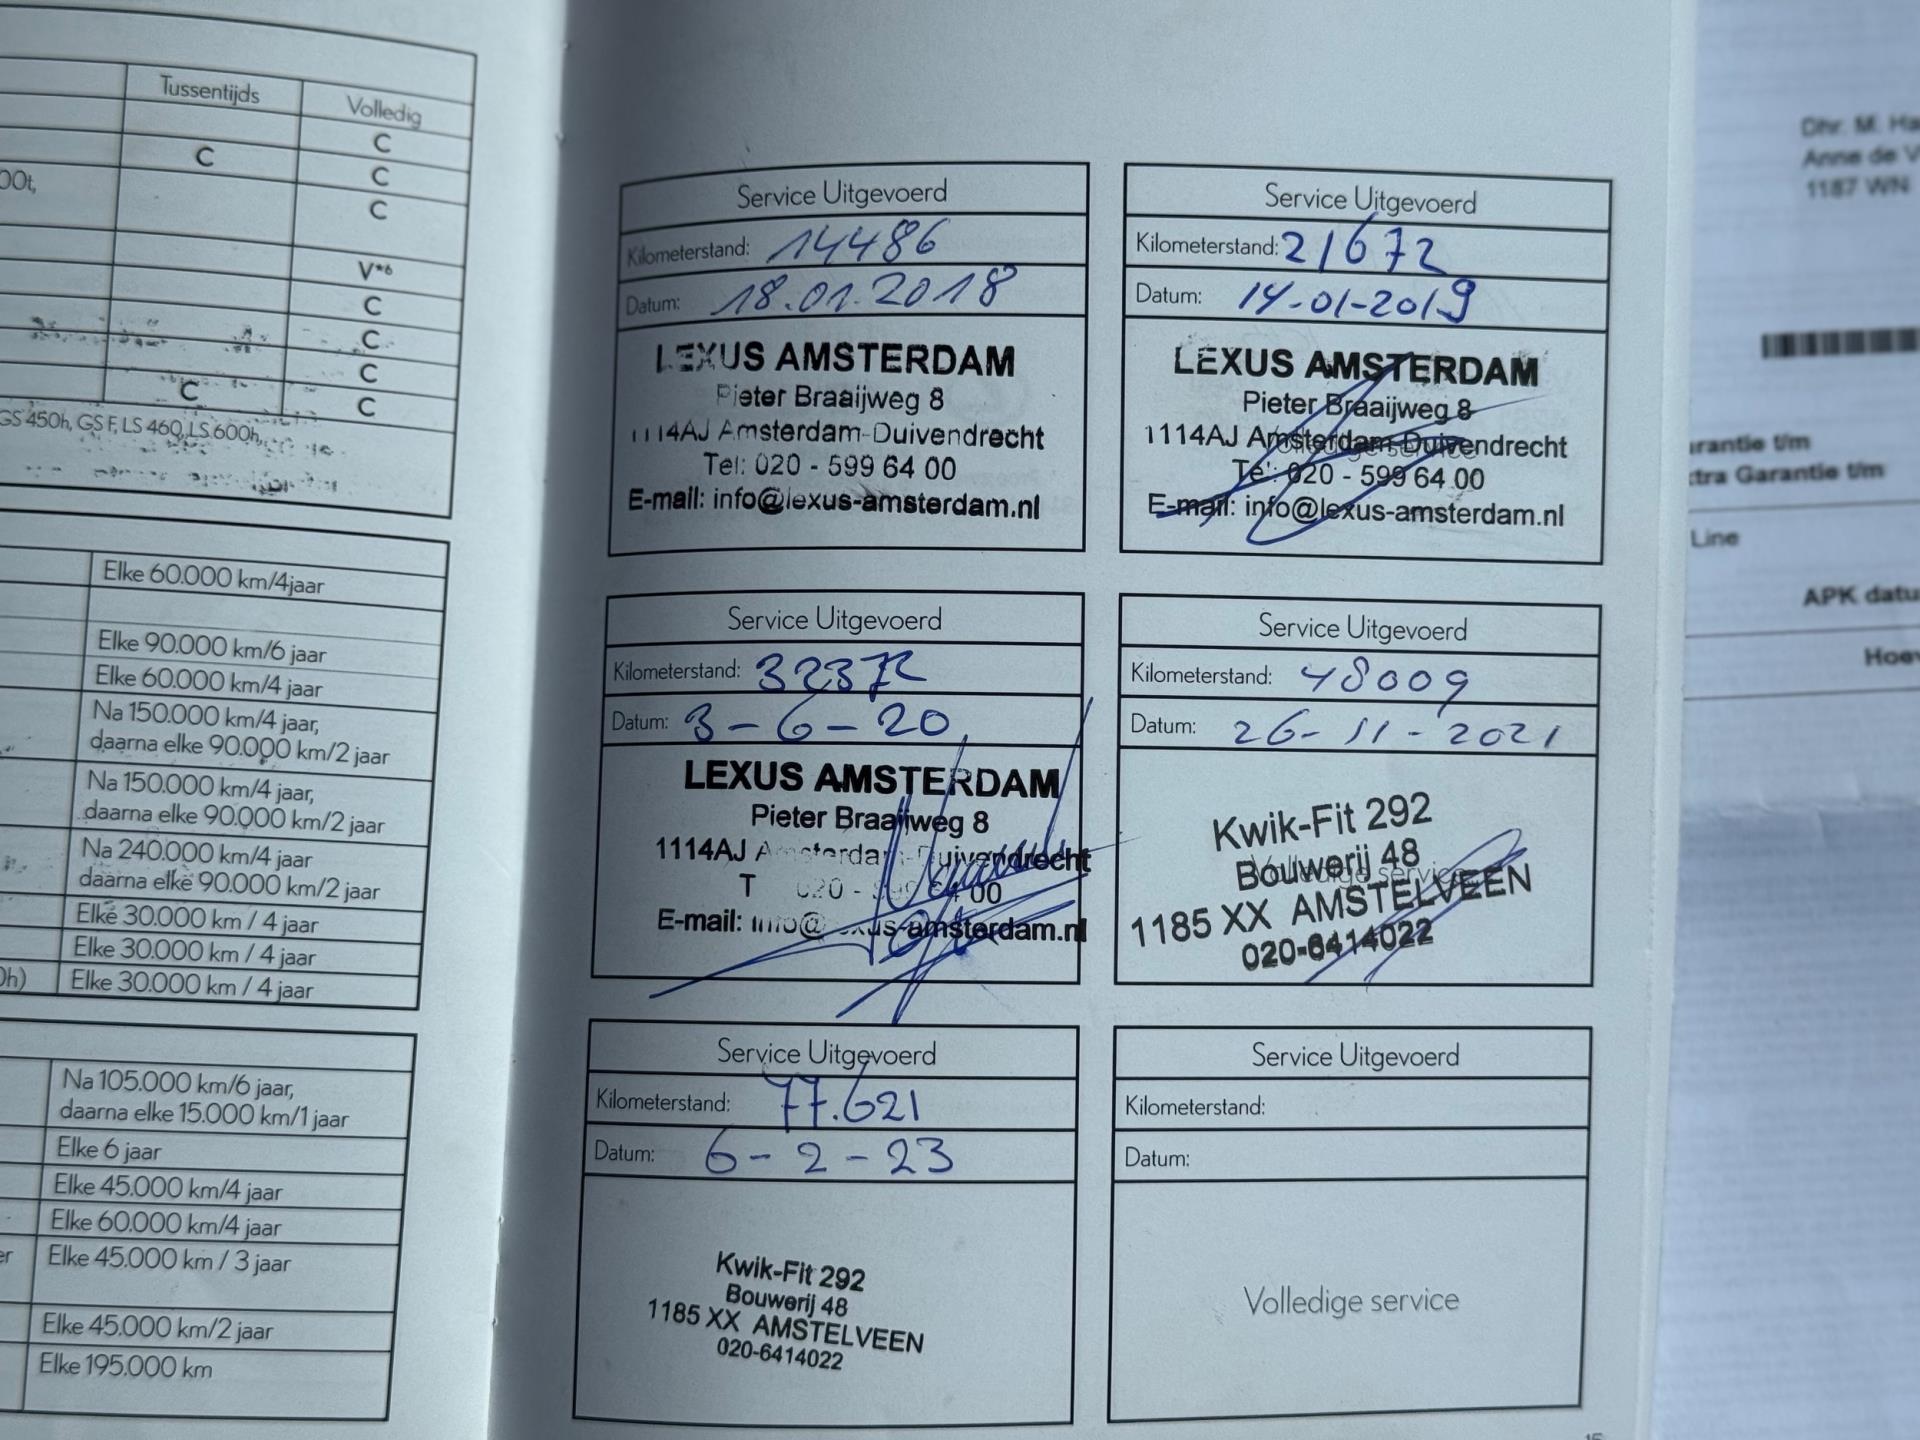 Tussentijds Volledig
C
C C
00t, C
V*6
C
C
C
C C
GS 450h, GS F, LS 460, LS 600h,
Elke 60.000 km/4jaar
Elke 90.000 km/6 jaar
Elke 60.000 km/4 jaar
Na 150.000 km/4 jaar,
daarna elke 90.000 km/2 jaar
Na 150.000 km/4 jaar,
daarna elke 90.000 km/2 jaar
Na 240.000 km/4 jaar
daarna elke 90.000 km/2 jaar
Elke 30.000 km / 4 jaar
Elke 30.000 km / 4 jaar
0h) Elke 30.000 km / 4 jaar
Na 105.000 km/6 jaar,
daarna elke 15.000 km/1 jaar
Elke 6 jaar
Elke 45.000 km/4 jaar
Elke 60.000 km/4 jaar
er Elke 45.000 km / 3 jaar
Elke 45.000 km/2 jaar
Elke 195.000 km
Service Uitgevoerd
Kilometerstand: 14486
Datum: 18.01.2018
LEXUS AMSTERDAM
Pieter Braaijweg 8
1114AJ Amsterdam-Duivendrecht
Tel: 020 - 599 64 00
E-mail: info@lexus-amsterdam.nl
Service Uitgevoerd
Kilometerstand: 21672
Datum: 14-01-2019
LEXUS AMSTERDAM
Pieter Braaijweg 8
1114AJ Amsterdam-Duivendrecht
Volledige service
Tel: 020 - 599 64 00
E-mail: info@lexus-amsterdam.nl
Service Uitgevoerd
Kilometerstand: 32372
Datum: 3-6-20
LEXUS AMSTERDAM
Pieter Braaijweg 8
1114AJ Amsterdam-Duivendrecht
T 020 - 599 64 00
E-mail: info@lexus-amsterdam.nl
Service Uitgevoerd
Kilometerstand: 48009
Datum: 26-11-2021
Kwik-Fit 292
Bouwerij 48
Volledige service
1185 XX AMSTELVEEN
020-6414022
Service Uitgevoerd
Kilometerstand: 77.621
Datum: 6-2-23
Kwik-Fit 292
Bouwerij 48
1185 XX AMSTELVEEN
020-6414022
Service Uitgevoerd
Kilometerstand:
Datum:
Volledige service
15
Dhr. M. Ha
Anne de V
1187 WN
arantie t/m
xtra Garantie t/m
Line
APK datu
Hoev